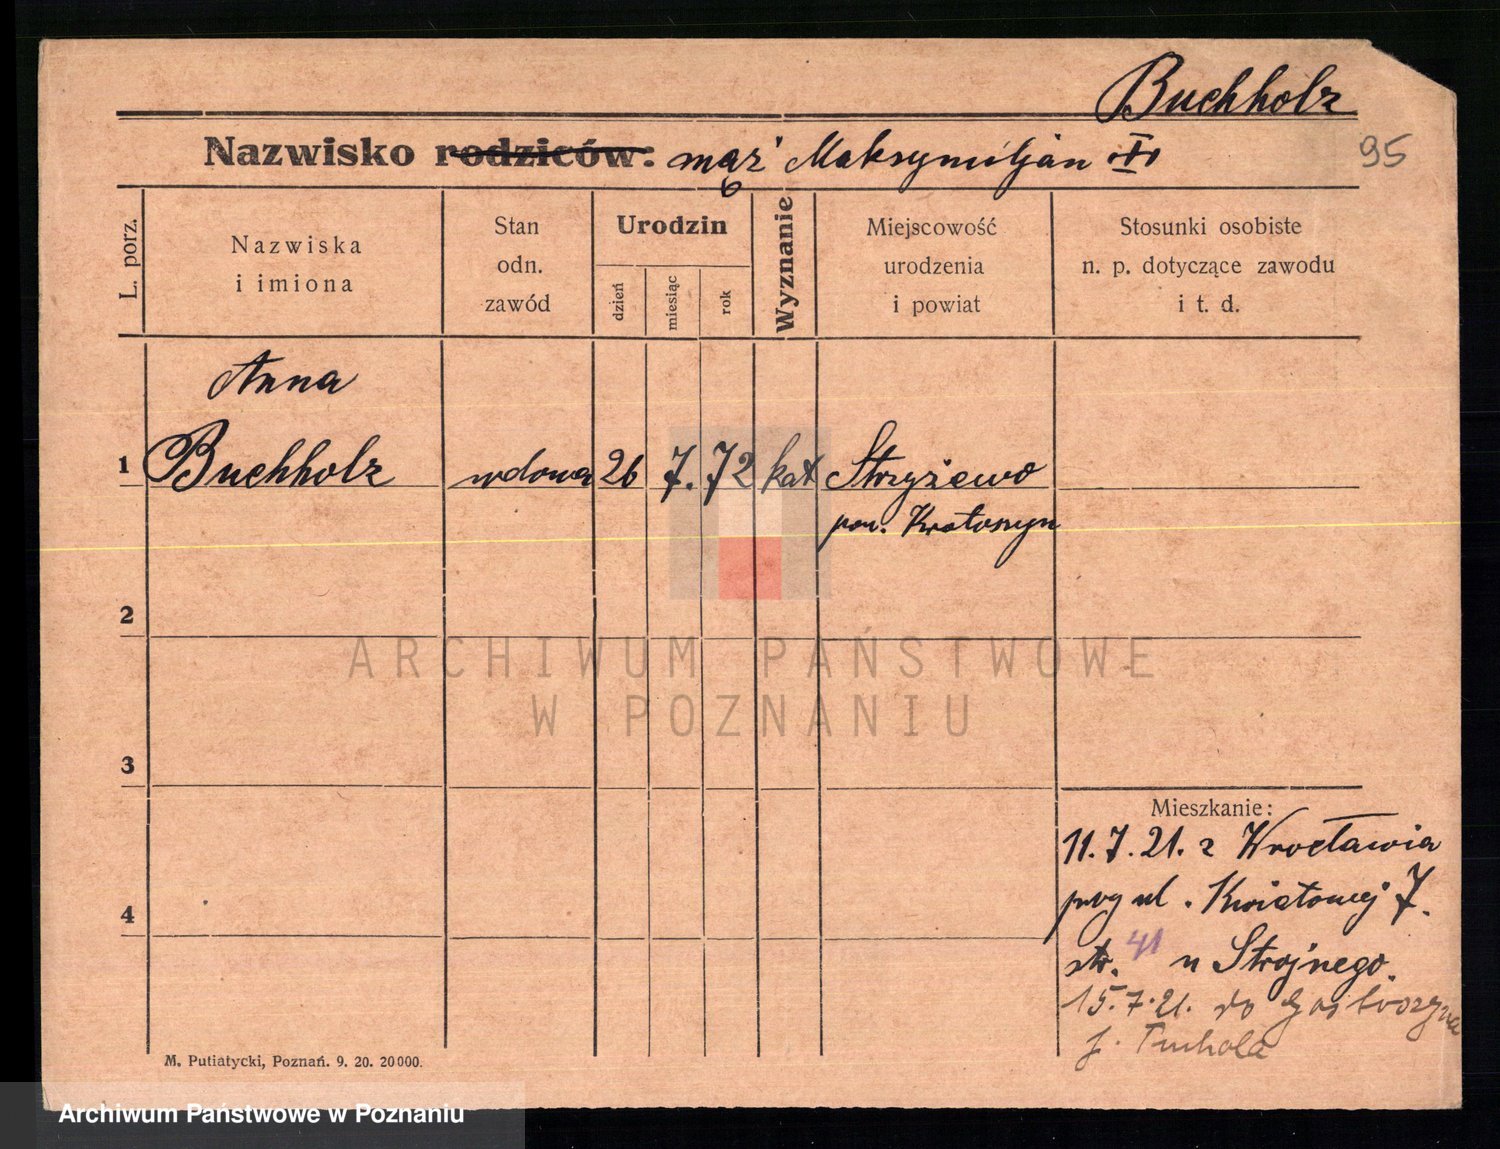 Buchholz
95
Nazwisko rodziców: mąż Maksymiljan I
L. porz.
Nazwiska i imiona
Stan odn. zawód
Urodzin
dzień
miesiąc
rok
Wyznanie
Miejscowość urodzenia i powiat
Stosunki osobiste n. p. dotyczące zawodu i t. d.
Anna
1 Buchholz wdowa 26 7. 72 kat Strzyżewo
pow. Krotoszyn
2
3
4
ARCHIWUM PAŃSTWOWE
W POZNANIU
Mieszkanie:
11.7.21. z Wrocławia
przy ul. Kwiatowej 7.
str. 41 u Strojnego.
15.7.21. do
p. Tuchola
M. Putiatycki, Poznań. 9. 20. 20000.
Archiwum Państwowe w Poznaniu